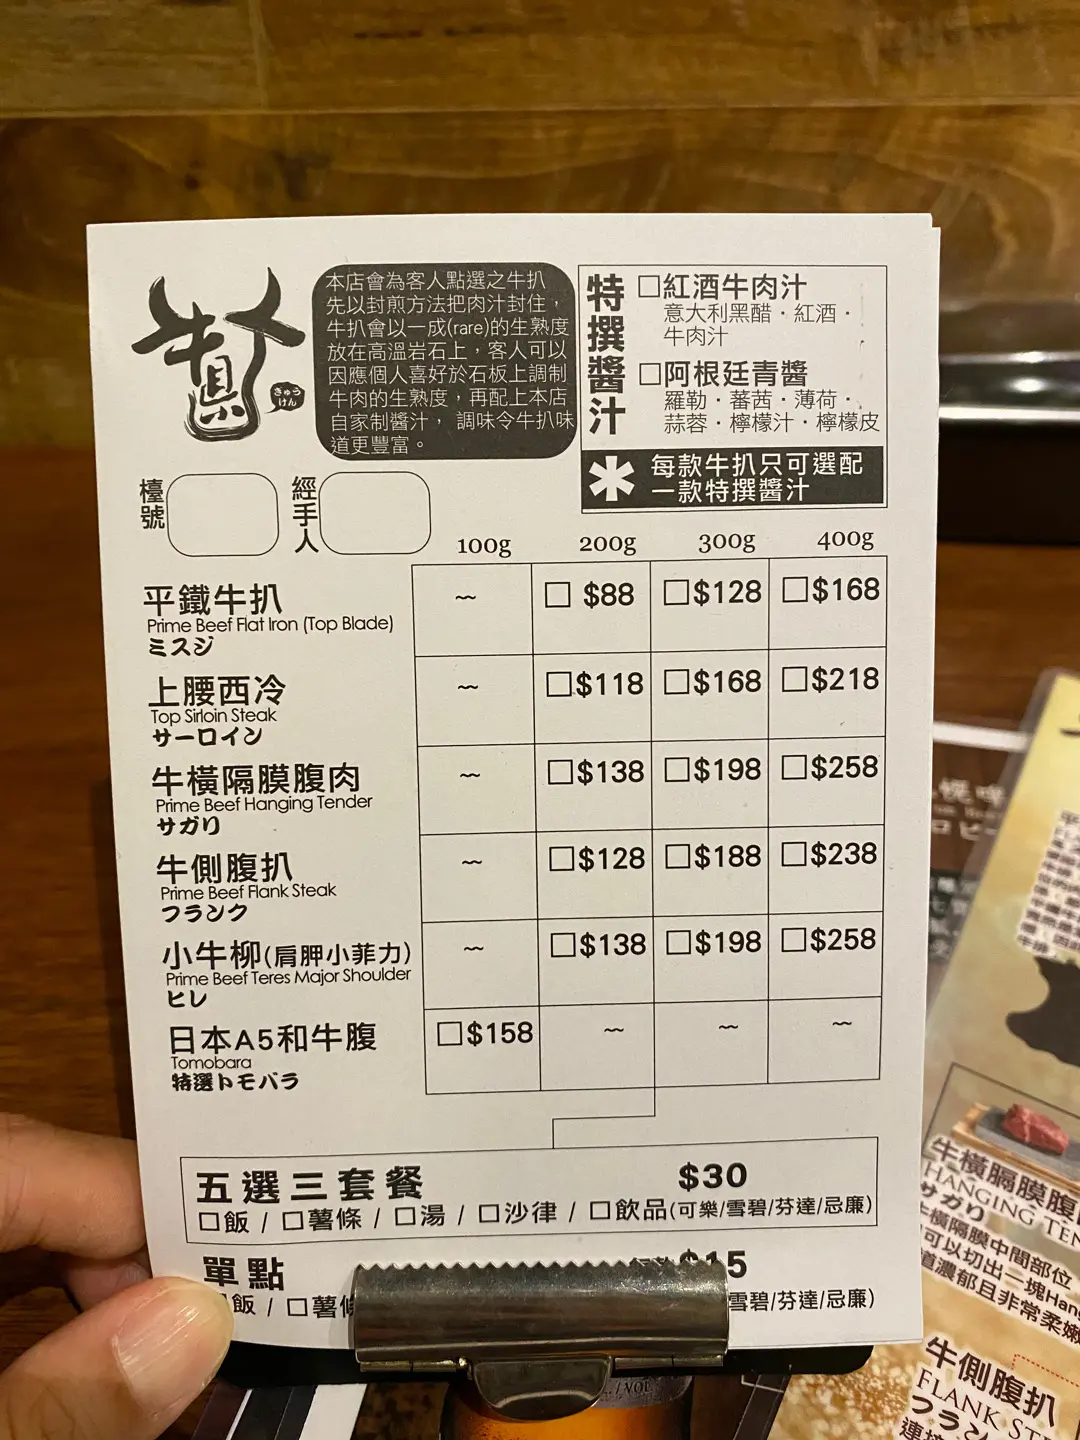 牛具人
ぎゅう
けん
本店會為客人點選之牛扒
先以封煎方法把肉汁封住，
牛扒會以一成(rare)的生熟度
放在高溫岩石上，客人可以
因應個人喜好於石板上調制
牛肉的生熟度，再配上本店
自家制醬汁， 調味令牛扒味
道更豐富。
特撰醬汁
□紅酒牛肉汁
意大利黑醋・紅酒・
牛肉汁
□阿根廷青醬
羅勒・蕃茜・薄荷・
蒜蓉・檸檬汁・檸檬皮
* 每款牛扒只可選配
一款特撰醬汁
檯號
經手人
100g 200g 300g 400g
平鐵牛扒 ~ □ $88 □$128 □$168
Prime Beef Flat Iron (Top Blade)
ミスジ
上腰西冷 ~ □$118 □$168 □$218
Top Sirloin Steak
サーロイン
牛橫隔膜腹肉 ~ □$138 □$198 □$258
Prime Beef Hanging Tender
サガり
牛側腹扒 ~ □$128 □$188 □$238
Prime Beef Flank Steak
フランク
小牛柳(肩胛小菲力) ~ □$138 □$198 □$258
Prime Beef Teres Major Shoulder
ヒレ
日本A5和牛腹 □$158 ~ ~ ~
Tomobara
特選トモバラ
五選三套餐 $30
□飯 / □薯條 / □湯 / □沙律 / □飲品(可樂/雪碧/芬達/忌廉)
單點 $15
飯 / □薯條 雪碧/芬達/忌廉)
牛橫膈膜腹
HANGING TEN
サガり
橫隔膜中間部位
可以切出一塊Hang
道濃郁且非常柔嫩
牛側腹扒
FLANK ST
フラン